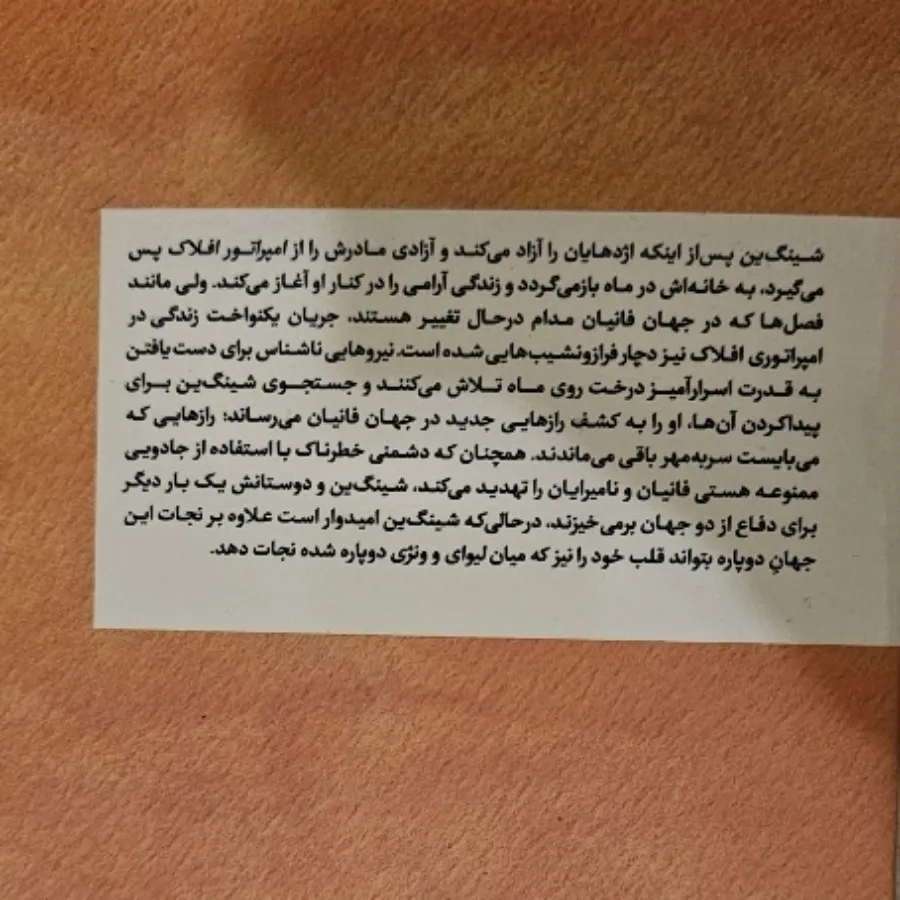 شینگ‌ین پس‌از اینکه اژدهایان را آزاد می‌کند و آزادی مادرش را از امپراتور افلاک پس
می‌گیرد، به خانه‌اش در ماه بازمی‌گردد و زندگی آرامی را در کنار او آغاز می‌کند. ولی مانند
فصل‌ها که در جهان فانیان مدام درحال تغییر هستند، جریان یکنواخت زندگی در
امپراتوری افلاک نیز دچار فرازونشیب‌هایی شده است. نیروهایی ناشناس برای دست‌یافتن
به قدرت اسرارآمیز درخت روی ماه تلاش می‌کنند و جستجوی شینگ‌ین برای
پیداکردن آن‌ها، او را به کشف رازهایی جدید در جهان فانیان می‌رساند؛ رازهایی که
می‌بایست سربه‌مهر باقی می‌ماندند. همچنان که دشمنی خطرناک با استفاده از جادویی
ممنوعه هستی فانیان و نامیرایان را تهدید می‌کند، شینگ‌ین و دوستانش یک بار دیگر
برای دفاع از دو جهان برمی‌خیزند، درحالی‌که شینگ‌ین امیدوار است علاوه بر نجات این
جهانِ دوپاره بتواند قلب خود را نیز که میان لیوای و ونژی دوپاره شده نجات دهد.